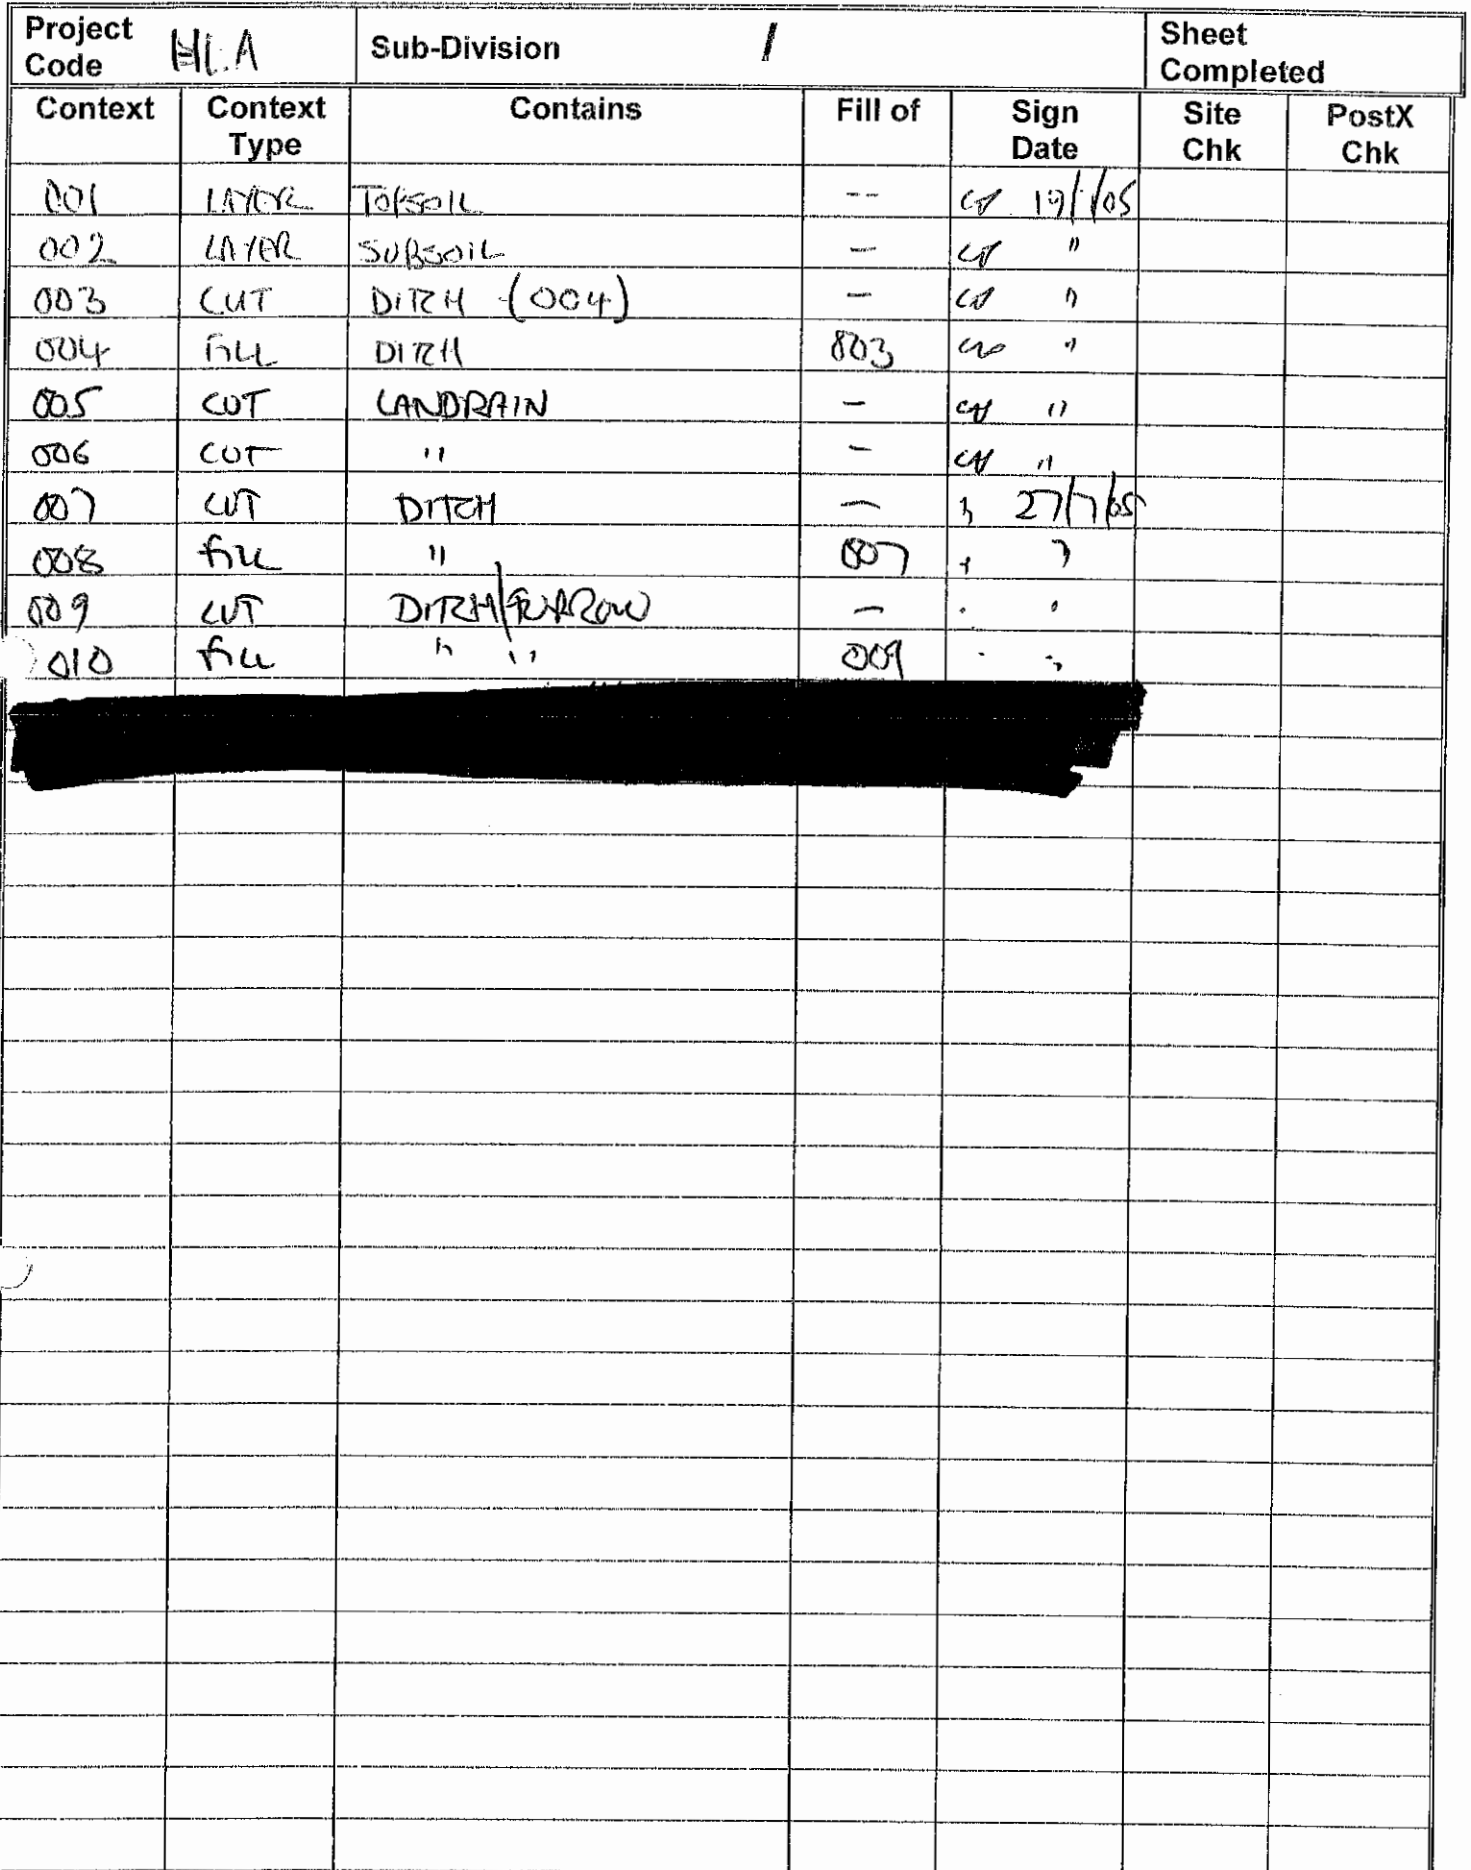 Project Code HLA Sub-Division / Sheet Completed
Context Context Type Contains Fill of Sign Date Site Chk PostX Chk
001 LAYER TOPSOIL -- 19/7/05
002 LAYER SUBSOIL - "
003 CUT DITCH (004) - "
004 FILL DITCH 003 "
005 CUT LANDRAIN - "
006 CUT " - "
007 CUT DITCH - " 27/7/05
008 FILL " 007 " "
009 CUT DITCH/FURROW - " "
010 FILL " " 009 " "